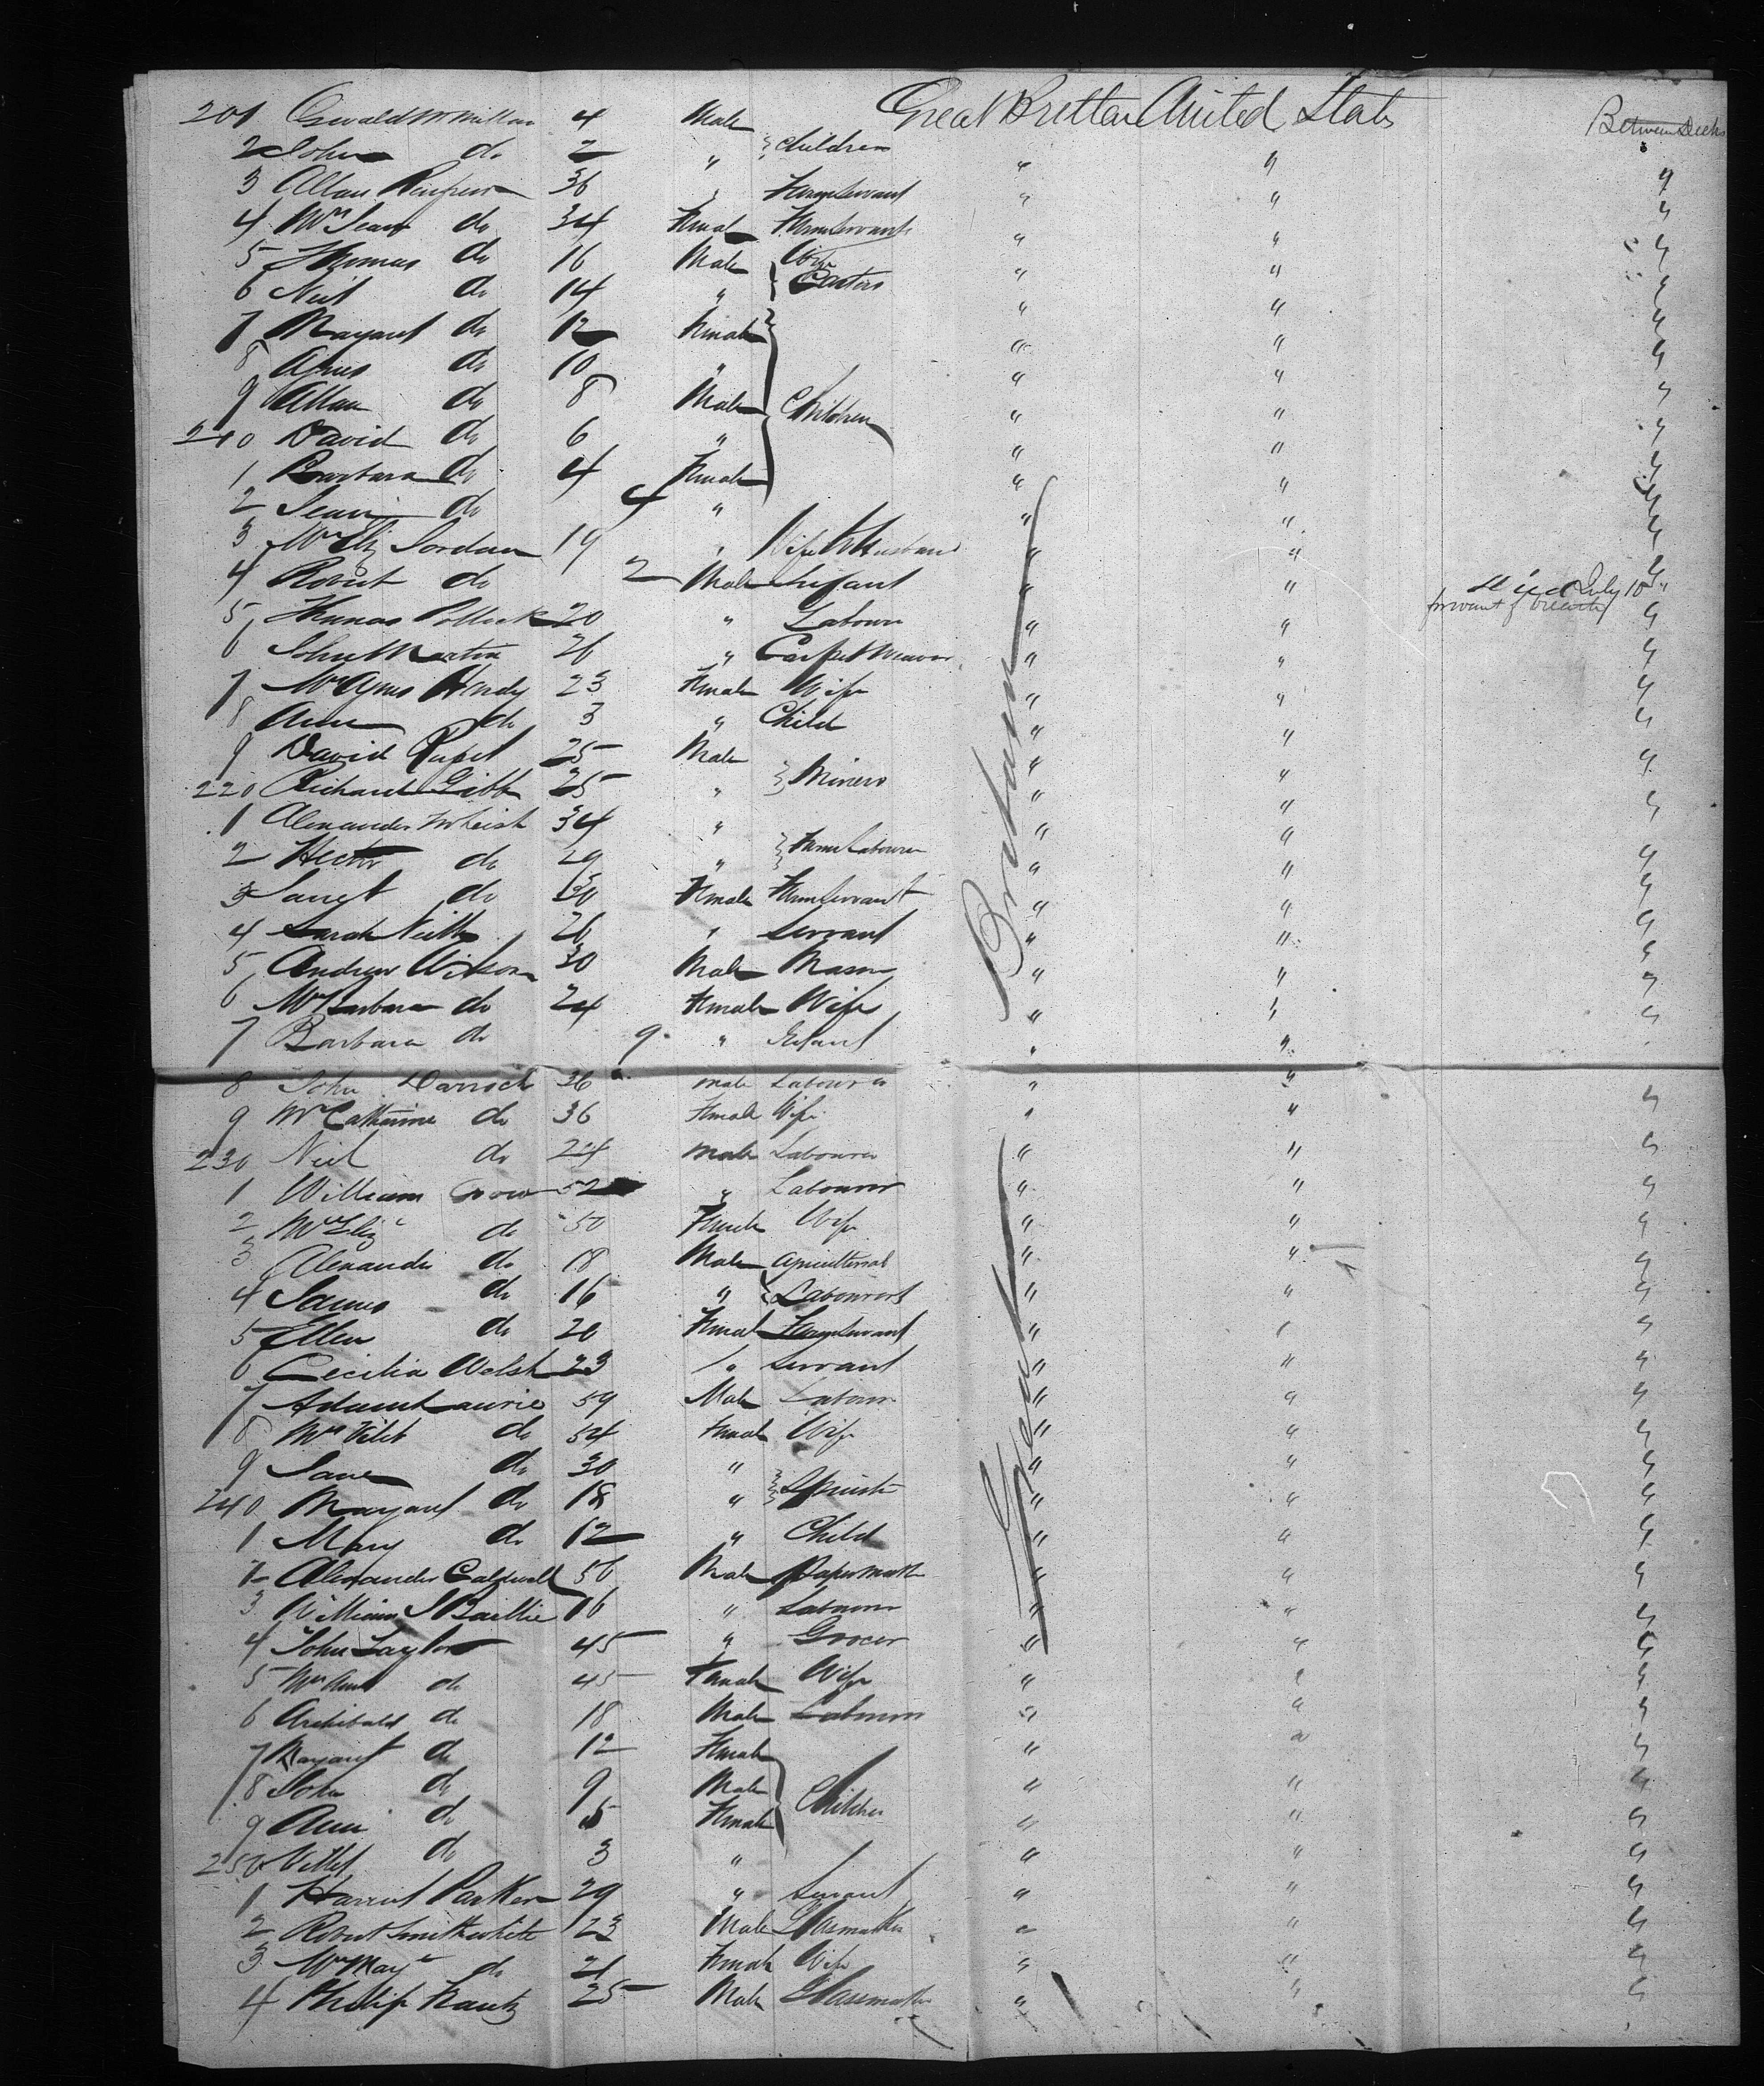 201 McMillan 4 Male Great Brittan United States Between Decks
2 John do 2 " } Children " "
3 Allan Renfrew 36 " Farm Servant " " "
4 Mrs Jean do 34 Female Farm Servants " " "
5 Thomas do 16 Male Wife " " "
6 Neil do 14 " } Carters " " "
7 Margaret do 12 Female " " "
8 Agnes do 10 " " " "
9 Allan do 8 Male } Children " " "
210 David do 6 " " " "
1 Barbara do 4 Female " " "
2 Jean do 4 " " " "
3 Mrs Eliz Jordan 19 " Wife to Husband " " "
4 Robert do 2 Male Infant " " Died July 10th
for want of breath
5 Thomas Pollock 20 " Labourer " " "
6 John Martin 26 " Carpet Weaver " " "
7 Mrs Agnes Hendy 23 Female Wife " " "
8 Ann do 3 " Child " " "
9 David 25 Male " " "
220 Richard Gibb 25 " } Miners " " "
1 Alexander McLeish 34 " " " "
2 Hector do 29 " } Farm Labourer " " "
3 Janet do 30 Female Farm Servant " " "
4 Sarah 26 " Servant " " "
5 Andrew Wilson 30 Male Mason " " "
6 Mrs Barbara do 24 Female Wife " " "
7 Barbara do 9 " Infant " "
Britain
8 John Darroch 36 Male Labourer " "
9 Mrs Catherine do 36 Female Wife " " "
230 Neil do 24 Male Labourer " " "
1 William Gow 52 " Labourer " " "
2 Mrs Eliz do 50 Female Wife " " "
3 Alexander do 18 Male Agricultural " " "
4 James do 16 " } Labourers " " "
5 Ellen do 20 Female Farm Servant " " "
6 Cecilia Welsh 23 " Servant " " "
7 Adam Laurie 59 Male Labour " " "
8 Mrs do 54 Female Wife " " "
9 Jane do 30 " " " "
240 Margaret do 18 " } Spinster " " "
1 Mary do 12 " Child " " "
2 Alexander Caldwell 56 Male Papermaker " " "
3 William J Baillie 16 " Labourer " " "
4 John Taylor 45 " Grocer " " "
Great
5 Mrs Ann do 45 Female Wife " " "
6 Archibald do 18 Male Labourer " " "
7 Margaret do 12 Female " " "
8 John do 9 Male } Children " " "
9 Ann do 5 Female " " "
250 do 3 " " " "
1 Harriet Parker 29 " Servant " " "
2 Robert Smithwhite 23 Male Glassmaker " " "
3 Mrs do 21 Female Wife " " "
4 Philip 25 Male Glassmaker " " "